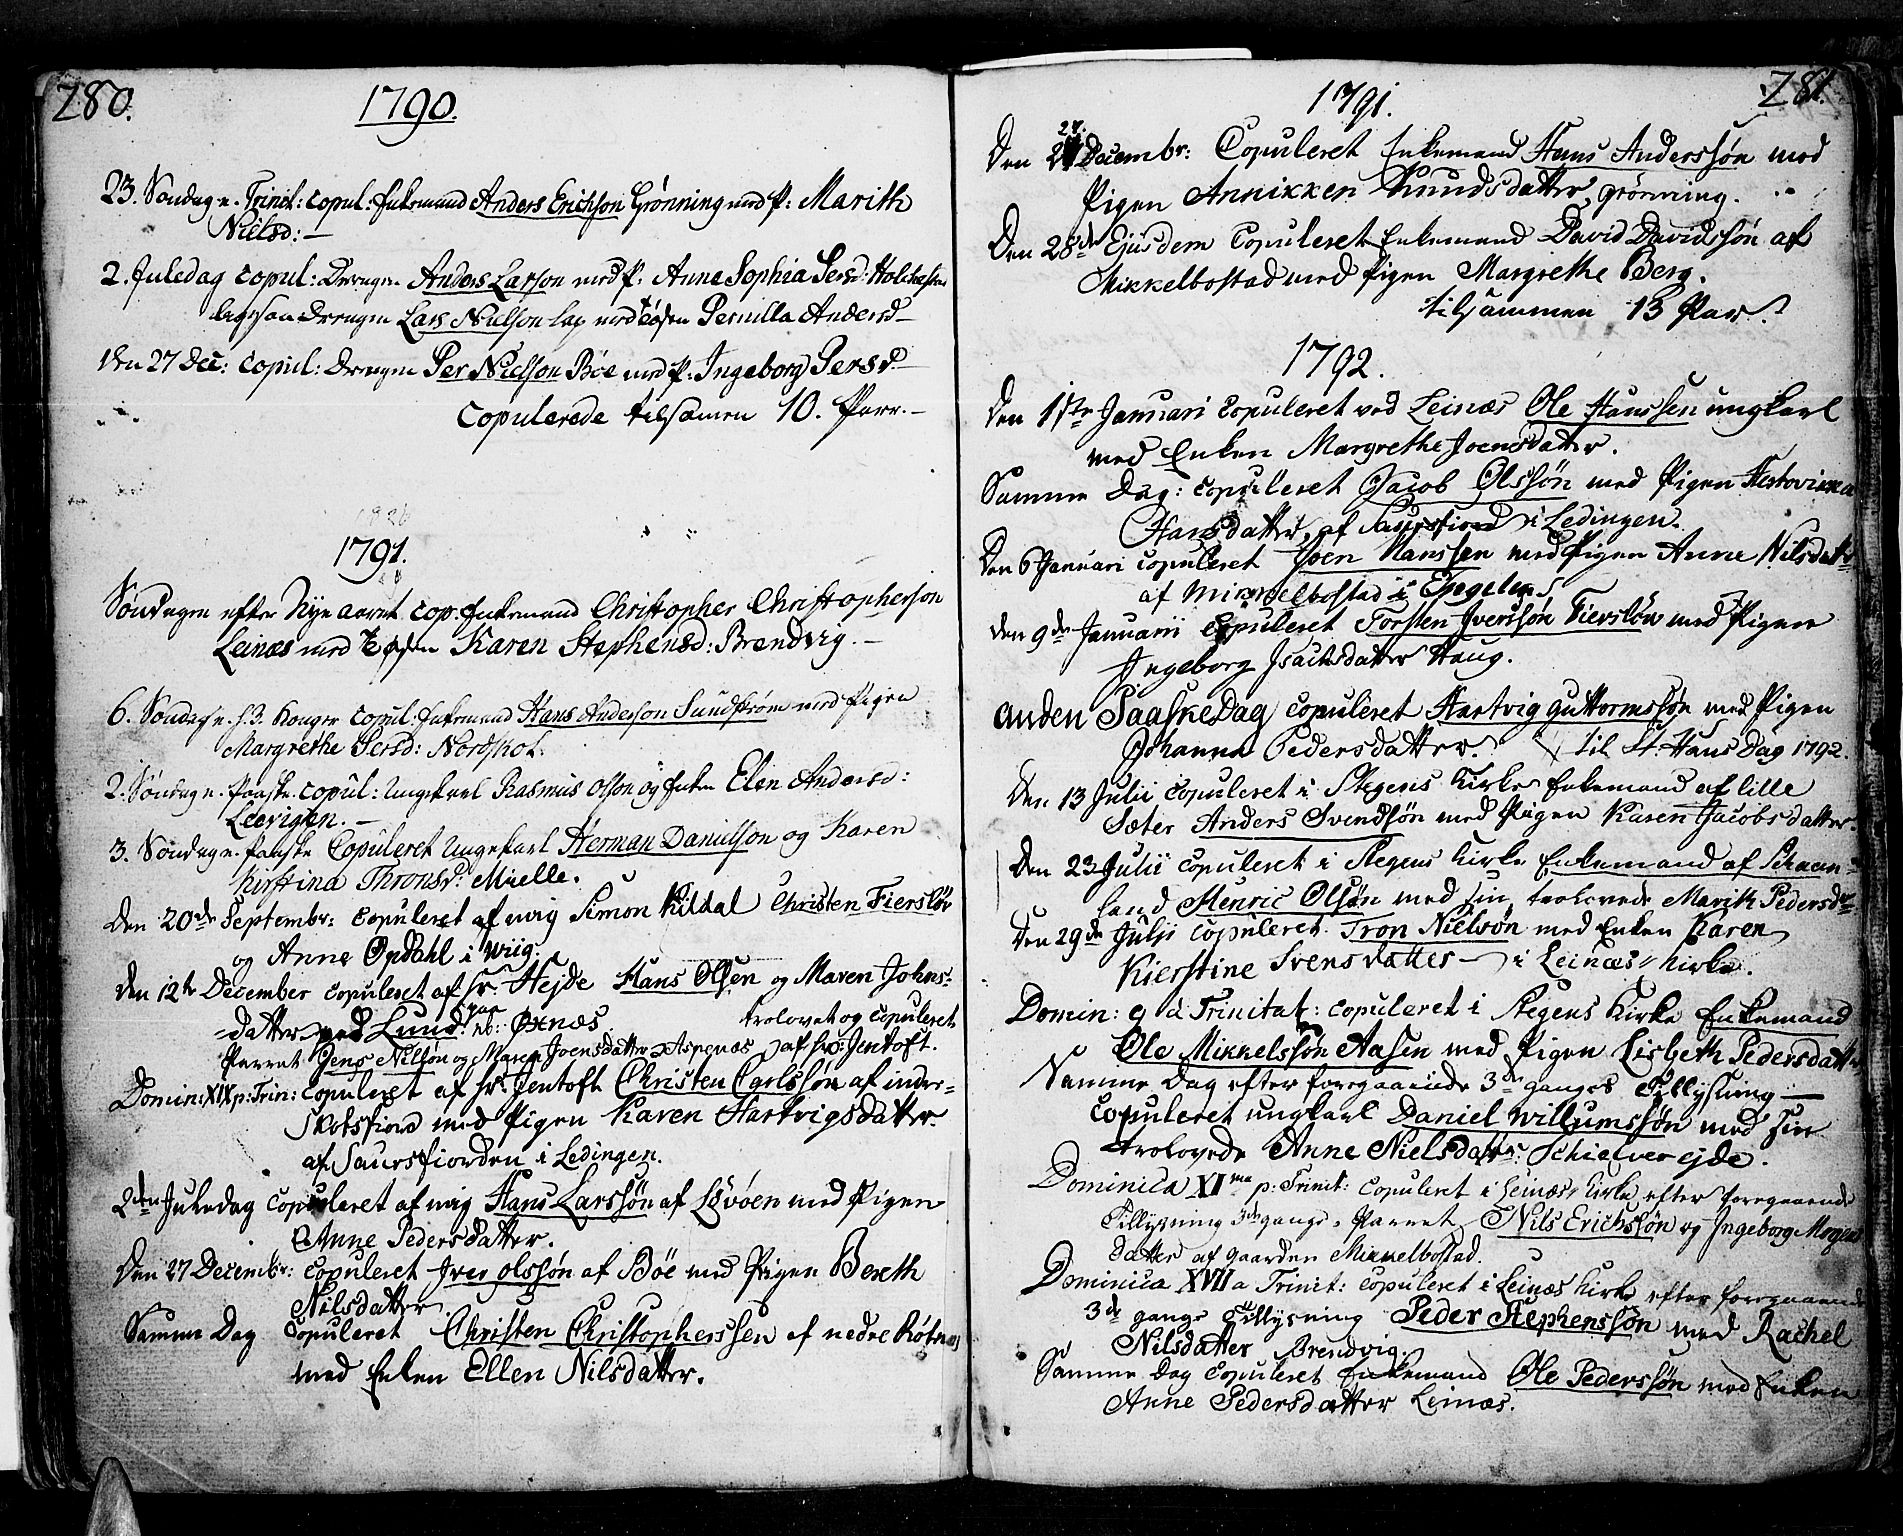 280.
1790.
23. Søndag e. Trinit: copul: Enkemand Anders Erichson Grønning med P: Marith
Nielsd: —
2. Juledag copul: Drengen Anders Larson med P: Anne Sophia Persd:
Drengen Lars Nielson Lap med Pernilla Andersd —
den 27 Dec: copul: Drengen Per Nielson Bøe med P: Ingeborg Persd
copulerede tilsamen 10. Parr. —
1791.
Søndagen efter Nye aaret cop. Enkemand Christopher Christopherson
Leinæs med Karen Stephensd: Brendvig. —
6. Søndag e. h. 3. Konger copul: Enkemand Hans Anderson Sundstrøm med Pigen
Margrethe Persd: Nordskot.
2. Søndag e. Paaske copul: Ungekarl Rasmus Olson og Enken Elen Andersd:
Leevigen. —
3. Søndag e. Paaske Copuleret Ungekarl Herman Danielson og Karen
Kirstina Thronsd: Mielle.
Den 20de Septembr: copuleret af mig Simon Kildal Christen Fiersløv
og Anne Opdahl i Wiig.
den 12te December copuleret af hr: Hejde Hans Olsen og Maren Johns-
datter ved Lund. nb: Øxnæs. trolovet og copuleret
Parret Jens Nilsøn og Maren Joensdatter Aspenæs af hr: Jentoft.
Domin: XIX p: Trin: copuleret af hr: Jentoft Christen Carlssøn af inder-
skotsfiord med Pigen Karen Hartvigsdatter
af Saursfiorden i Ledingen.
2den Juledag copuleret af mig Hans Larssøn af Løvøen med Pigen
Anne Pedersdatter.
Den 27 Decembr: copuleret Iver olssøn af Bøe med Pigen Bereth
Nilsdatter.
Samme Dag copuleret Christen Christopherssen af nedre
med Enken Ellen Nilsdatter.
281.
1791.
27.
Den Decembr: Copuleret Enkemand Hans Anderssøn med
Pigen Annikken Knudsdatter, grønning.
Den 28de Ejusdem copuleret Enkemand David Davidssøn af
Mikkelbostad med Pigen Margrethe Berg.
tilsammen 13 Par.
1792.
den 1ste Januari copuleret ved Leinæs Ole Hanssen ungkarl
med Enken Margrethe Joensdatter.
Samme Dag: copuleret Jacob Olssøn med Pigen
Hansdatter, af Saursfiord i Ledingen.
Den 6 Januari copuleret Joen Hanssen med Pigen Anne Nilsdatr
af Mikkelbostad i Engeløen.
den 9de Januarii copuleret Torsten Iverssøn Fiersløv med Pigen
Ingeborg Isachsdatter Haug.
anden Paaske Dag copuleret Hartvig guttormssøn med Pigen
Johanna Pedersdatter. til St. Hans Dag 1792.
Den 13 Julii copuleret i Stegens Kirke Enkemand af lille
Sæter Anders Svendsøn med Pigen Karen Jacobsdatter.
Den 23 Julii copuleret i Stegens Kirke Enkemand af Schaan-
land Henric Olsøn med sin trolovede Marith Pedersdr
Den 29de Julii copuleret Tron Nielsøn med Enken Karen
Kierstine Svensdatter — i Leinæs Kirke.
Domin: 9 à Trinitat: copuleret i Stegens Kirke Enkemand
Ole Mikkelssøn Aasen med Pigen Lisbeth Pedersdatter
Samme Dag efter foregaaende 3de ganges Tillysning —
copuleret ungkarl Daniel Willumssøn med sin
trolovede Anne Nielsdatr Schielverejde.
Dominica XIma p: Trinit: copuleret i Leinæs Kirke efter foregaaende
Tillysning 3de gange Parret Nils Erichssøn og Ingeborg Mogens
datter af gaarden Mikkelbostad.
Dominica XVII a Trinit: copuleret i Leinæs Kirke efter foregaaende
3de gange Tillysning Peder Stephenssøn med Rachel
Nilsdatter Brendvig.
Samme Dag copuleret Enkemand Ole Pederssøn med Enken
Anne Pedersdatter Leinæs.